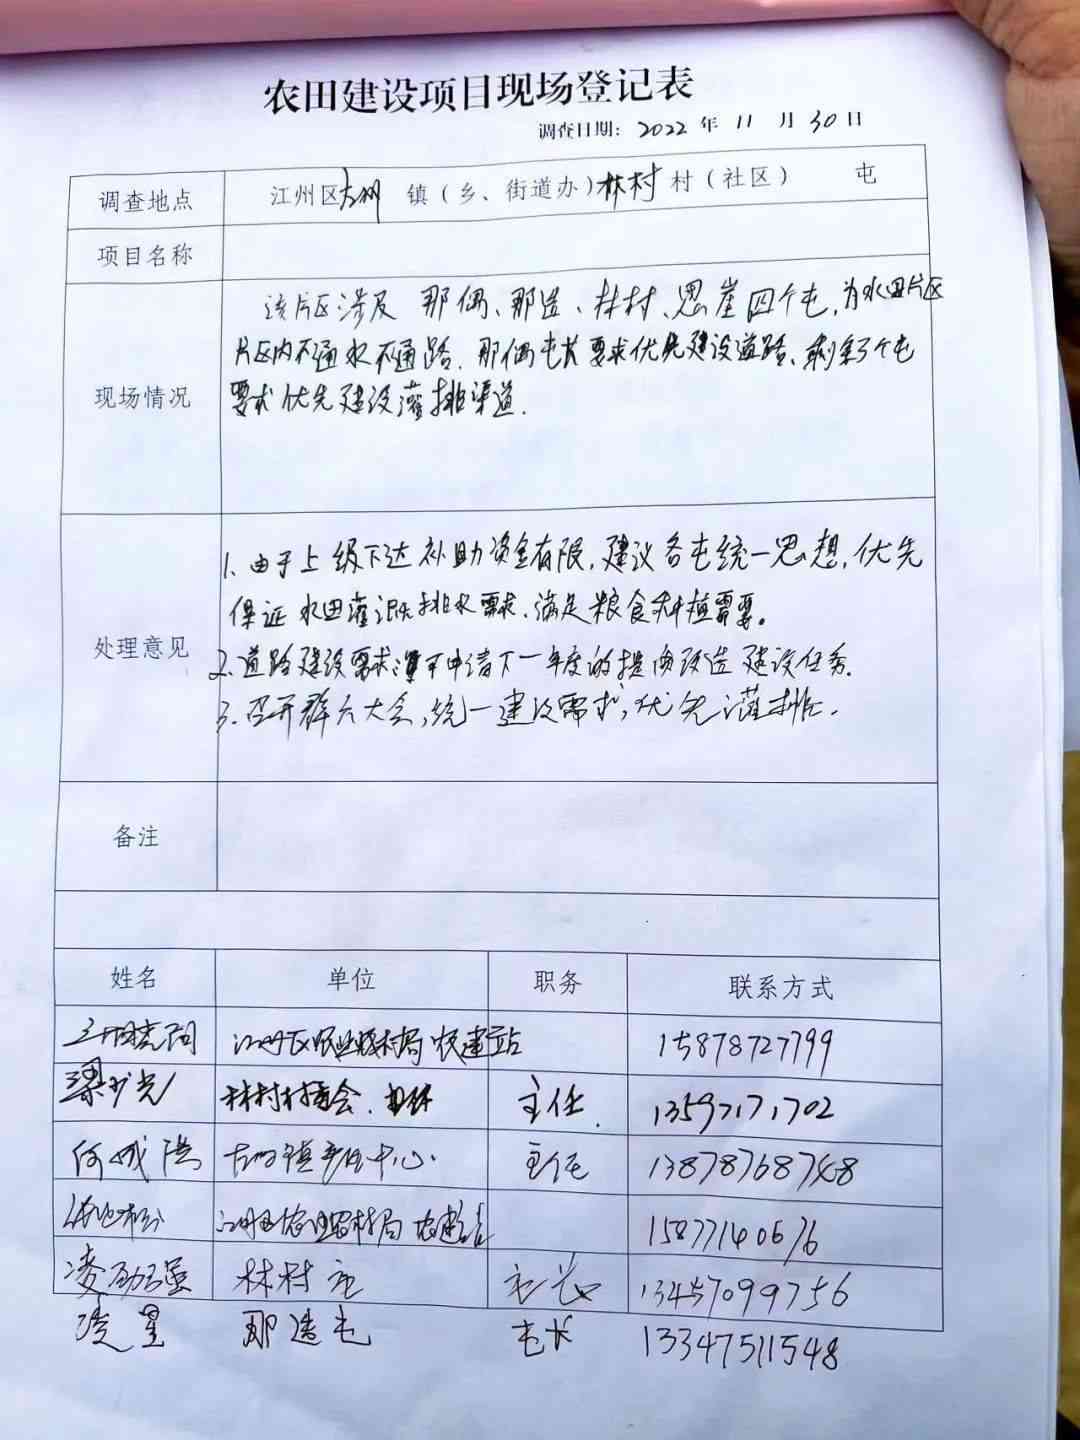 农田建设项目现场登记表
调查日期：2022年11月30日
调查地点 江州区 镇（乡、街道办）林村村（社区） 屯
项目名称
现场情况
该片区涉及那偶、那造、林村、思崖四个屯，为水田片区
片区内不通水不通路．那偶屯长要求优先建设道路、剩余3个屯
要求优先建设灌排渠道．
处理意见
1、由于上级下达补助资金有限，建议各屯统一思想，优先
保证水田灌溉排水需求、满足粮食种植需要。
2、道路建设要求 可申请下一年度的提质改造建设任务．
3、召开群众大会，统一建设需求，优先灌排．
备注
姓名 单位 职务 联系方式
江州区农业农村局农建站 15878727799
林村村委会 主任 13597171702
何 主任 13878768768
江州区农业农村局农建站 15877140676
凌劲强 林村屯 屯长 13457099756
凌星 那造屯 屯长 13347511548